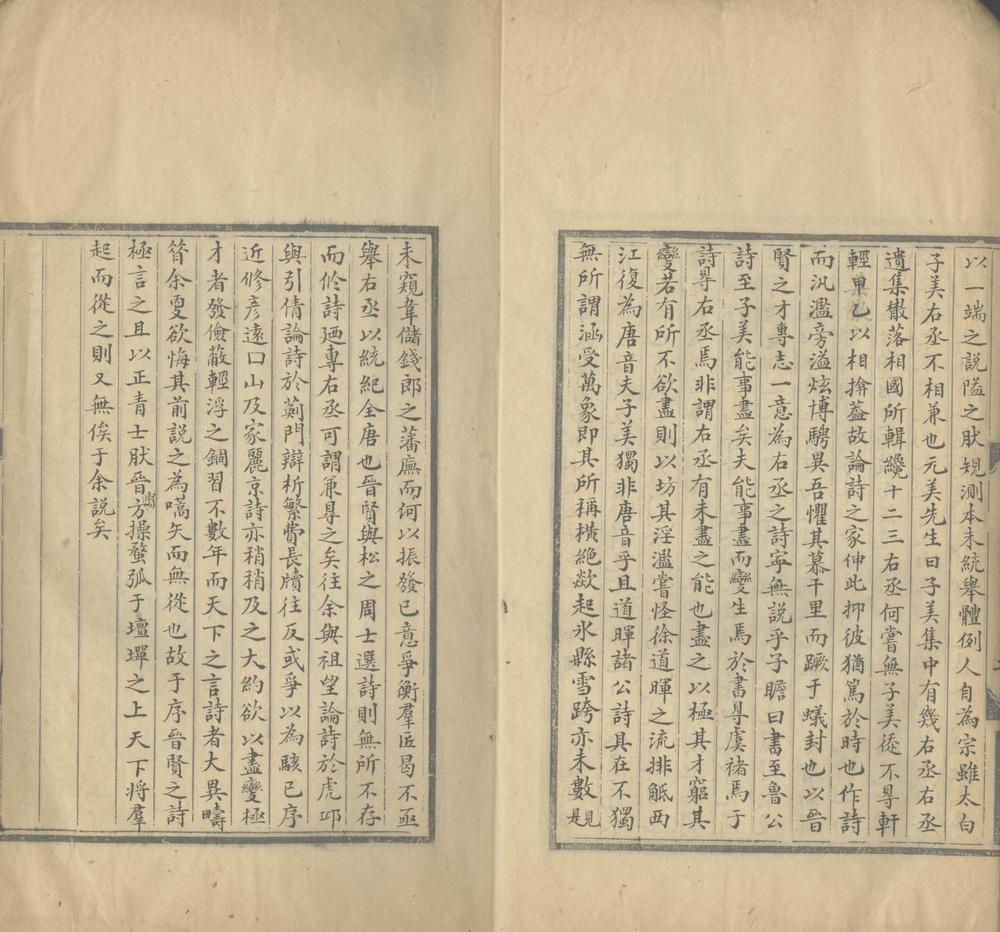 以一端之説隘之肰規測本末統舉體例人自為宗雖太白
子美右丞不相兼也元美先生曰子美集中有幾右丞右丞
遺集散落相國所輯纔十二三右丞何嘗無子美從不㝵軒
輕甲乙以相揜葢故論詩之家伸此抑彼猶篤於時也作詩
而汎濫旁溢炫博騁異吾懼其慕千里而蹶于蟻封也以晉
賢之才專志一意為右丞之詩寧無説乎子瞻曰書至魯公
詩至子美能事盡矣夫能事盡而變生焉於書㝵虞褚焉于
詩㝵右丞焉非謂右丞有未盡之能也盡之以極其才窮其
變若有所不欲盡則以坊其淫濫嘗怪徐道暉之流排觝西
江復為唐音夫子美獨非唐音乎且道暉諸公詩具在不獨
無所謂涵受萬象即其所稱橫絶歘起氷縣雪跨亦未數見是
未窺韋儲錢郎之藩廡而何以振發已意爭衡羣匠曷不亟
舉右丞以統紀全唐也晉賢與松之周士選詩則無所不存
而仱詩廼專右丞可謂兼㝵之矣往余與祖望論詩於虎邱
與引倩論詩於薊門辯析繁費長牘往反或爭以為駭已序
近修彦遠口山及家麗京詩亦稍稍及之大約欲以盡變極
才者發儉蔽輕浮之錮習不數年而天下之言詩者大異疇
䇾余更欲悔其前説之為嚆矢而無從也故于序晉賢之詩
極言之且以正青士肰晉賢方操蝥弧于壇墠之上天下將羣
起而從之則又無俟于余説矣